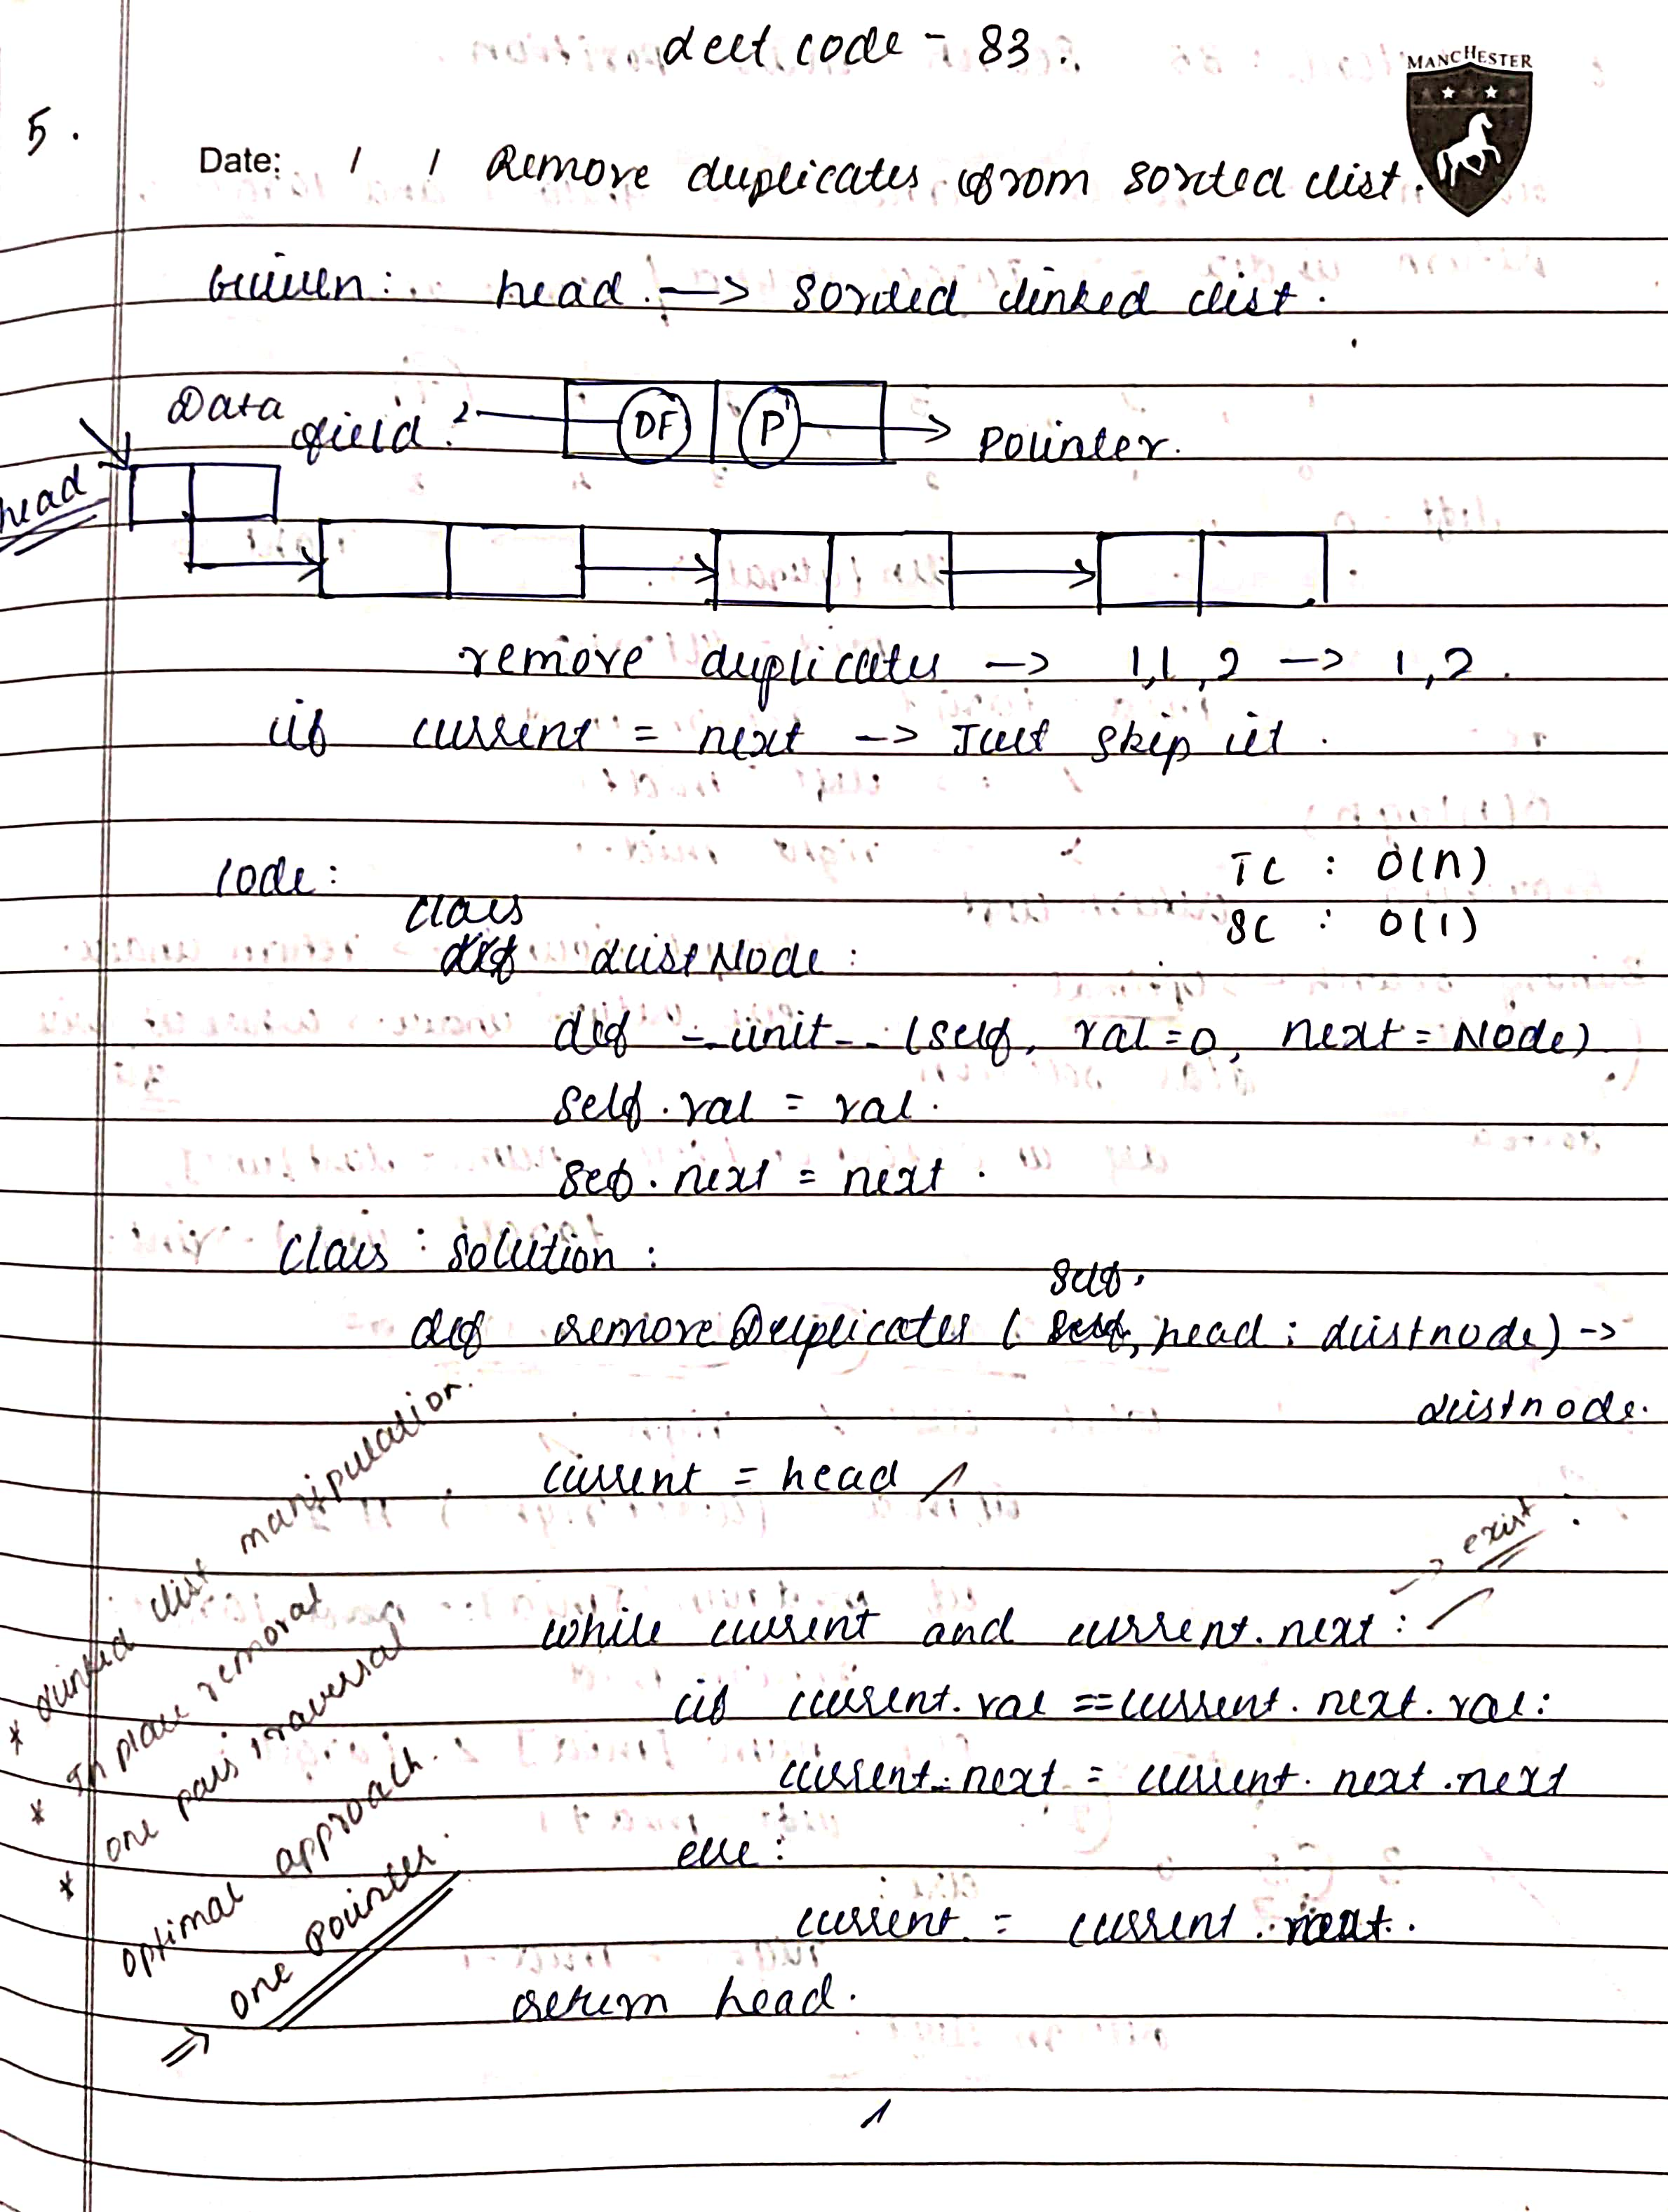 Leet code - 83.
MANCHESTER
5.
Date: / / Remove duplicates from sorted list.
Given: head. -> sorted linked list.
Data field. DF P -> Pointer.
head
remove duplicates -> 1,1,2 -> 1,2.
if current = next -> Just skip it.
Code:
TC : O(n)
SC : O(1)
class
def ListNode:
def __init__ (self, val=0, next=Node)
self.val = val.
self.next = next.
class : Solution:
self.
def removeDuplicates (self, head: Listnode) ->
Listnode.
current = head
-> exist
while current and current.next:
if current.val == current.next.val:
current.next = current.next.next
else:
current = current.next.
return head.
* Linked list manipulation.
* In place removal
* one pass traversal
optimal approach.
=> one pointer.